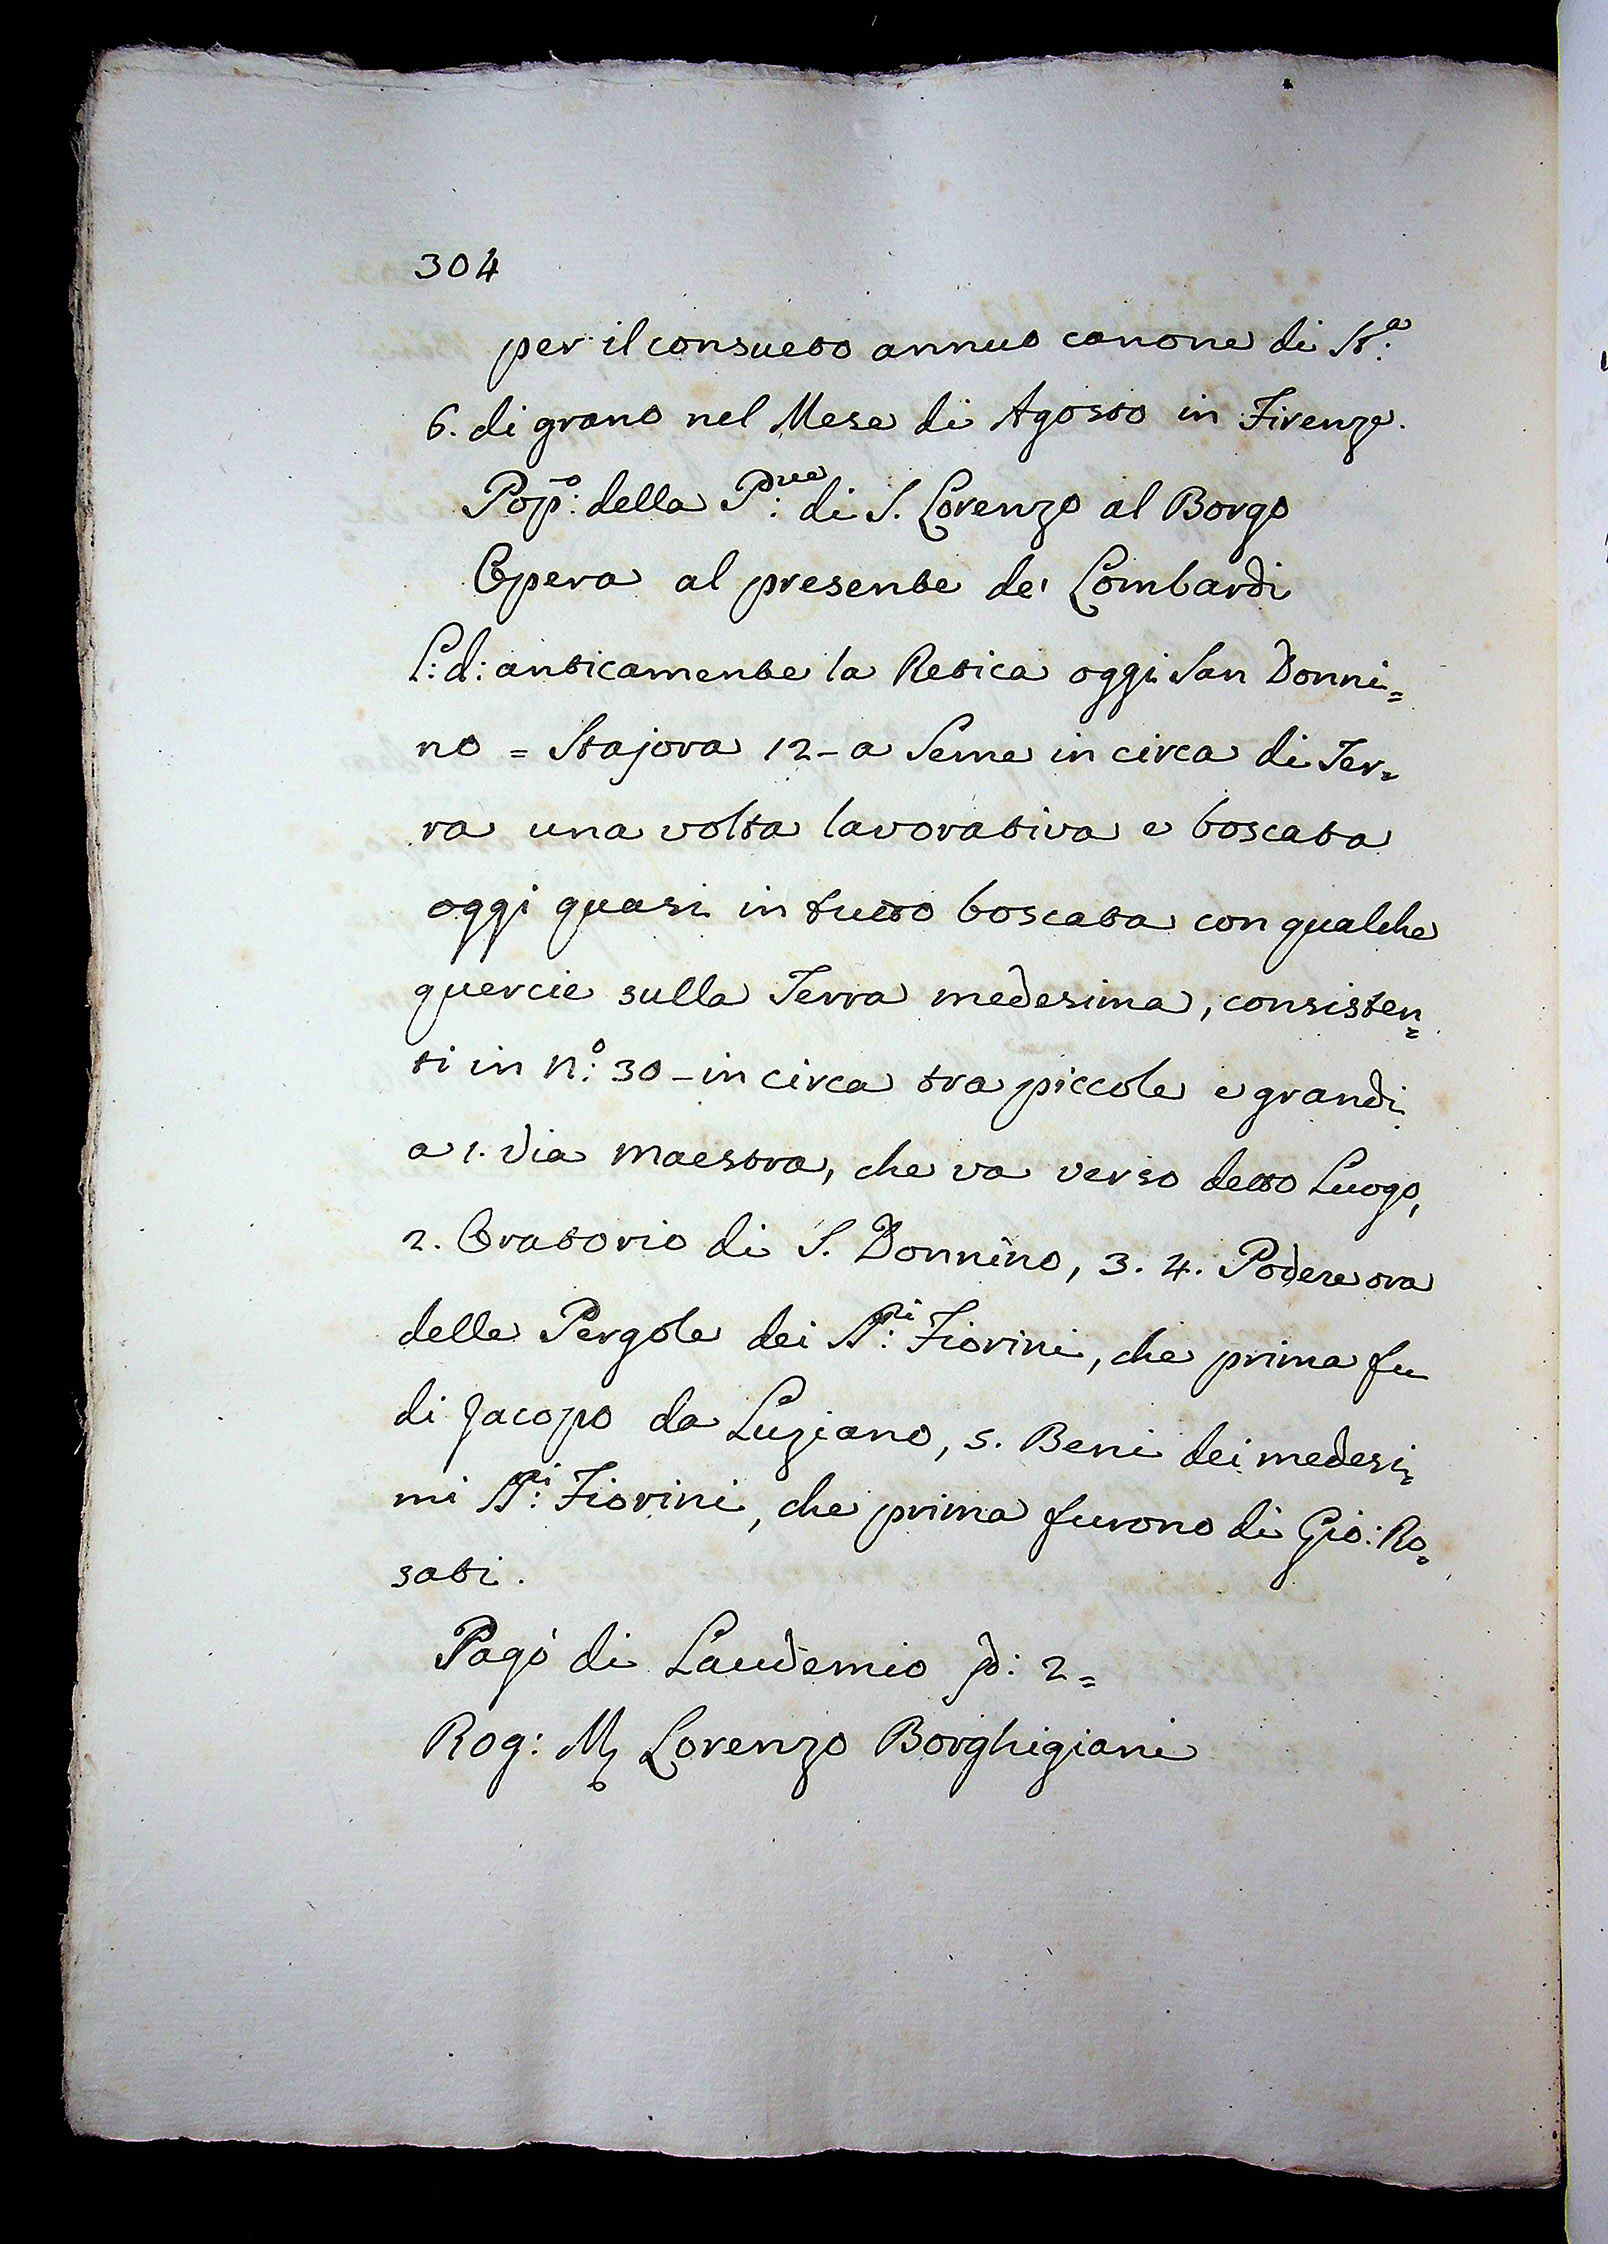 304
per il consueto annuo canone di St:ª
6. di grano nel Mese di Agosto in Firenze.
Pop:º della P:vea di S. Lorenzo al Borgo
Opera al presente de' Lombardi
L: d: anticamente la Retica oggi San Donni=
no = Stajora 12 - a Seme in circa di Ter=
ra una volta lavorativa e boscata
oggi quasi in tutto boscata con qualche
quercie sulla Terra medesima, consisten=
ti in N:º 30 - in circa tra piccole e grandi
a 1. Via Maestra, che va verso detto Luogo,
2. Oratorio di S. Donnino, 3. 4. Podere ora
delle Pergole dei SS:ri Fiorini, che prima fu
di Jacopo da Luziano, 5. Beni dei medesi=
mi SS:ri Fiorini, che prima furono di Gio: Ro=
sati.
Pagò di Laudemio 2=
Rog: Lorenzo Borghigiani